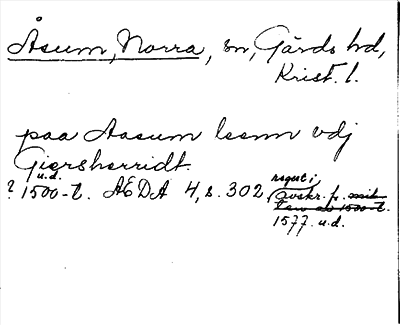 Åsum, Norra, sn, Gärds hd,
Krist. l.
paa Aasum leenn vdj
Giersherridt.
u.d.
? 1500-t. ÆDA 4, s. 302
regest i
avskr. fr. mit-
ten av 1500-t.
1577. u.d.